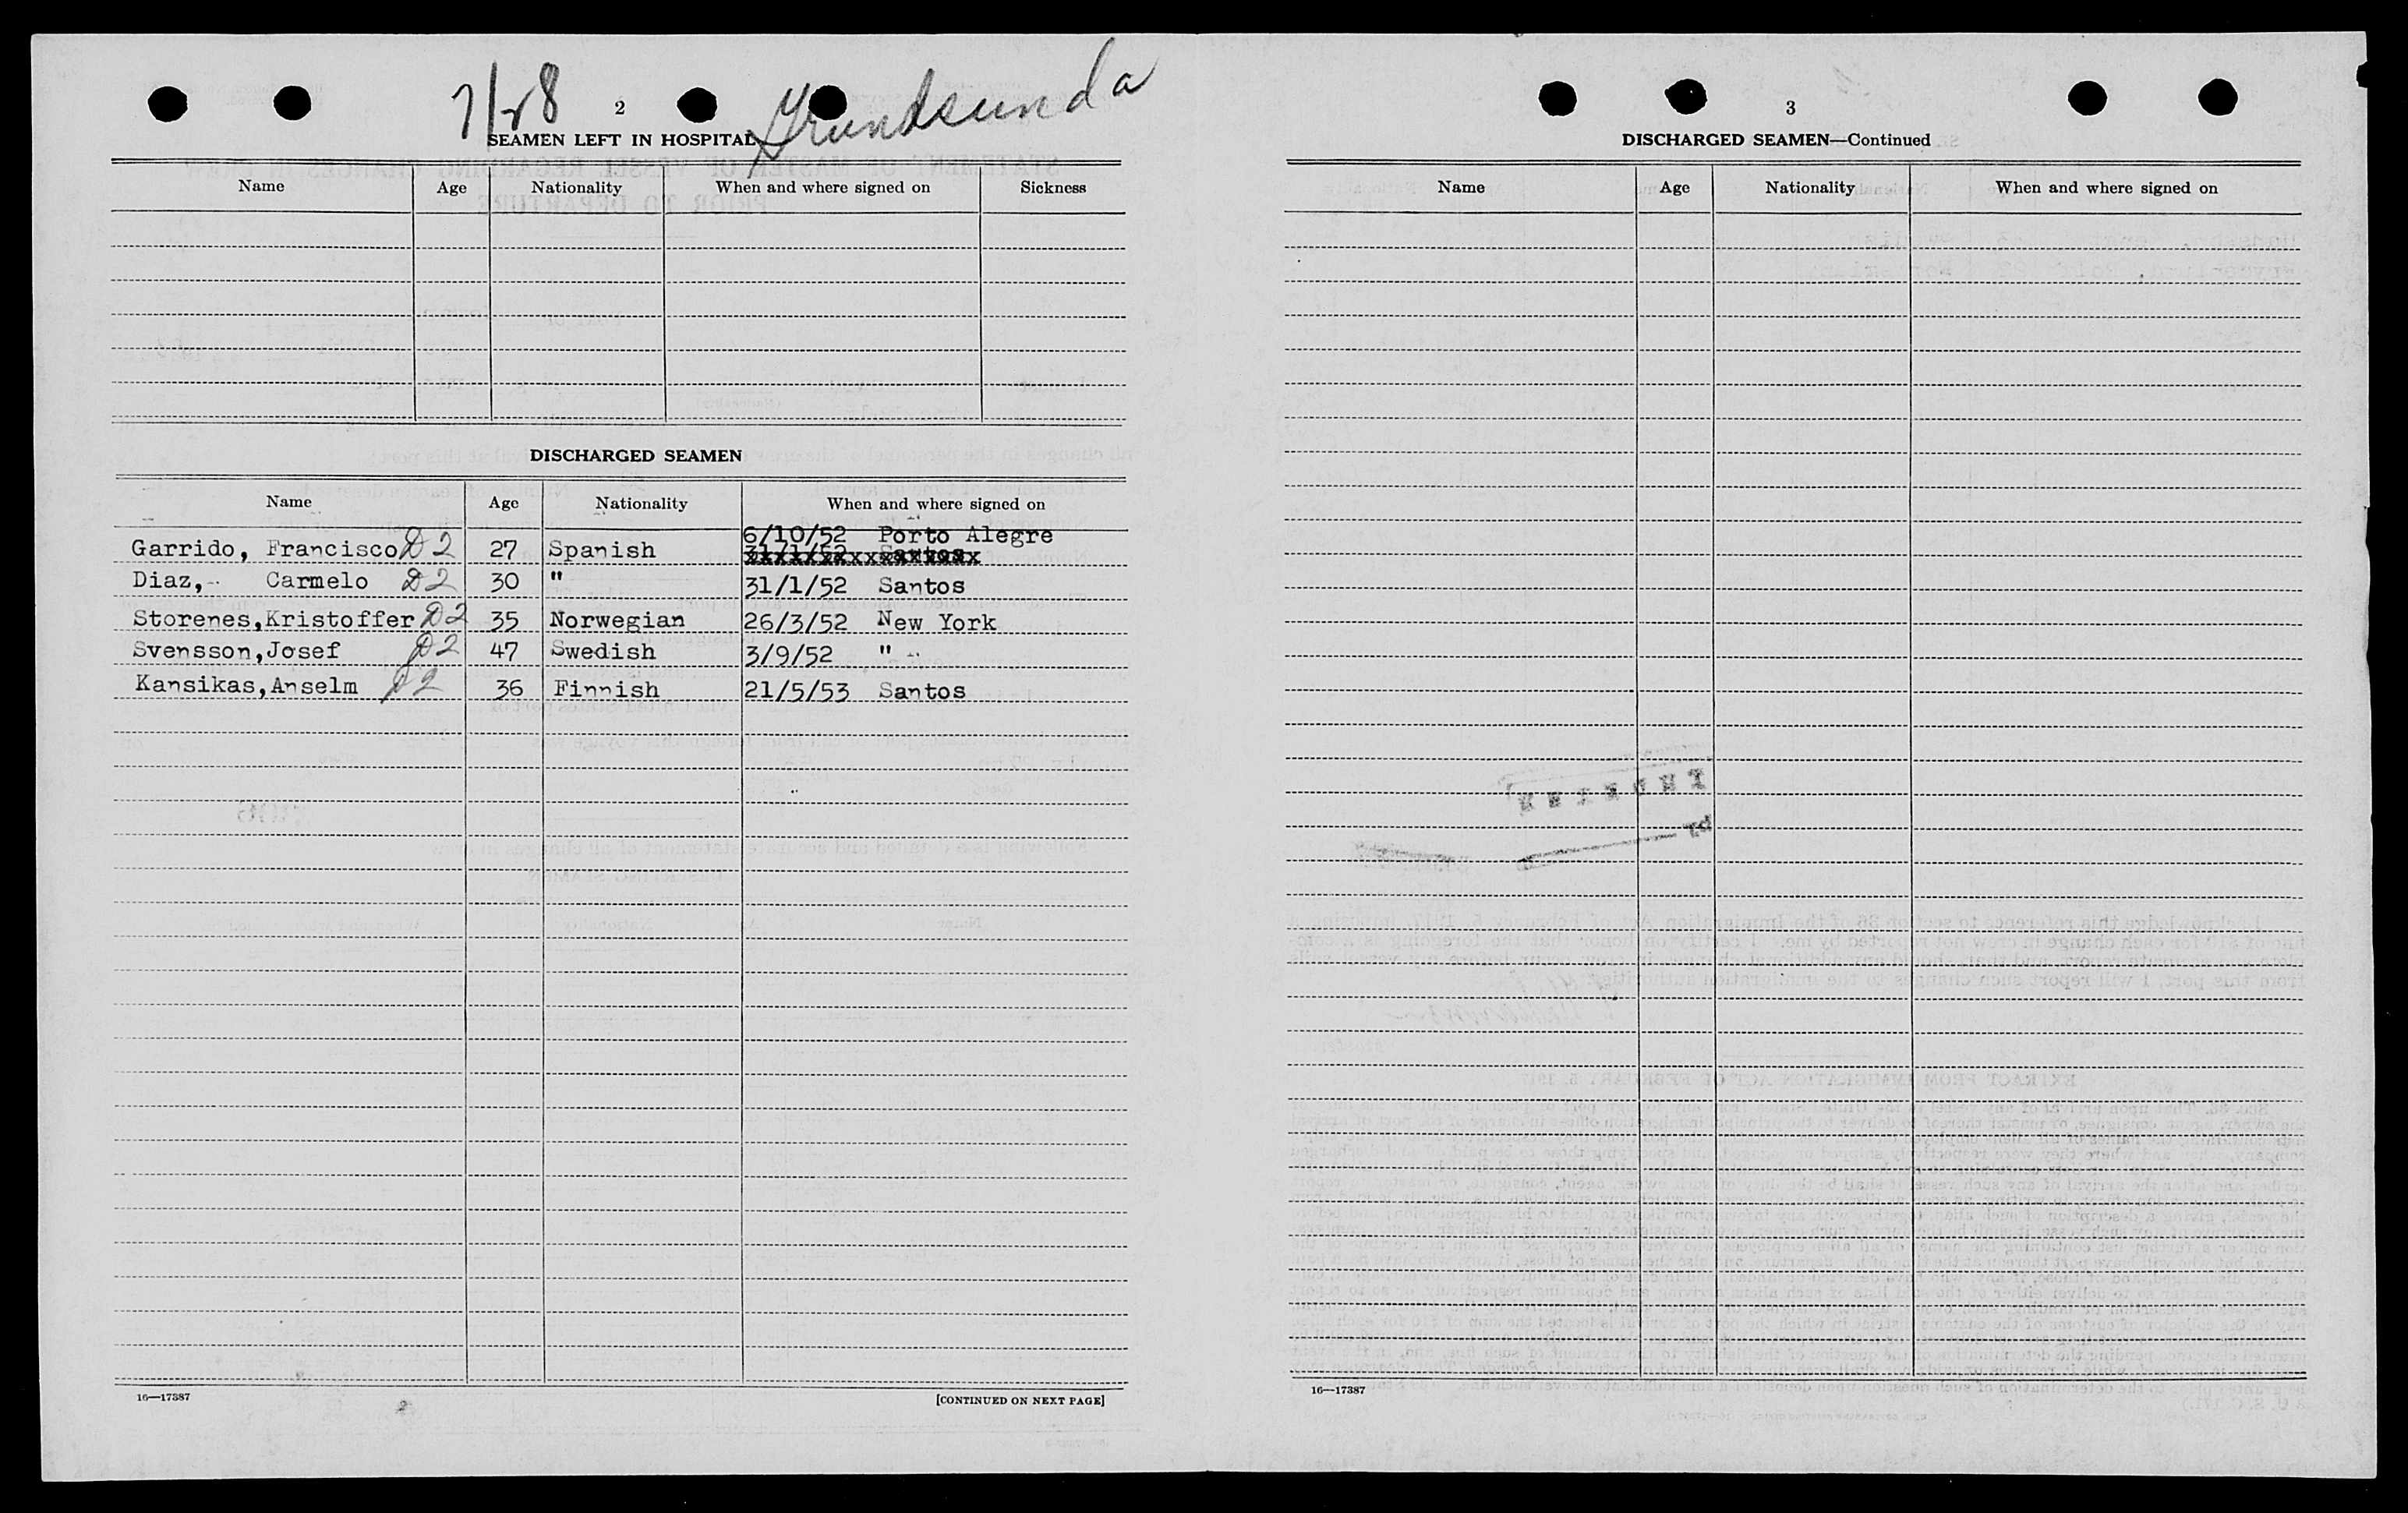 7/28 2 Grundsunda
SEAMEN LEFT IN HOSPITAL
Name Age Nationality When and where signed on Sickness
DISCHARGED SEAMEN
Name Age Nationality When and where signed on
6/10/52 Porto Alegre
Garrido, Francisco D2 27 Spanish 31/1/52 Santos
Diaz, Carmelo D2 30 " 31/1/52 Santos
Storenes,Kristoffer D2 35 Norwegian 26/3/52 New York
Svensson,Josef D2 47 Swedish 3/9/52 "
Kansikas,Anselm D2 36 Finnish 21/5/53 Santos
16—17387 [CONTINUED ON NEXT PAGE]
3
DISCHARGED SEAMEN—Continued
Name Age Nationality When and where signed on
16—17387